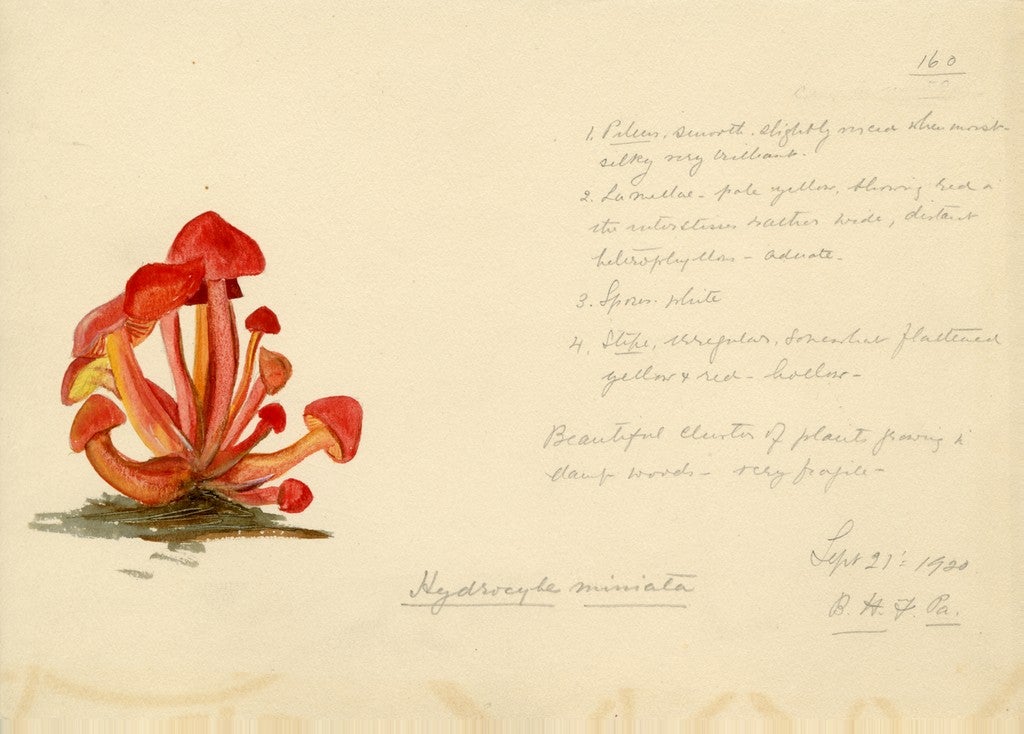 160
1. Pileus, smooth. slightly viscid when moist-
silky very brilliant.
2. Lamellae - pale yellow, showing red in
the interstices rather wide, distant
heterophyllous - adnate.
3. Spores. white
4. Stipe, irregular, somewhat flattened
yellow & red - hollow -
Beautiful cluster of plants growing in
damp woods - very fragile -
Sept 21: 1920
B. H. F. Pa.
Hydrocybe miniata